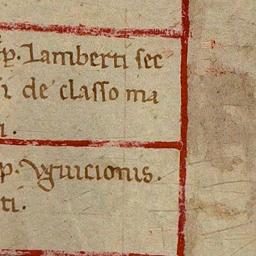 p. Iamberti sec
i de classo ma
i.
p. Vguicionis.
ti.